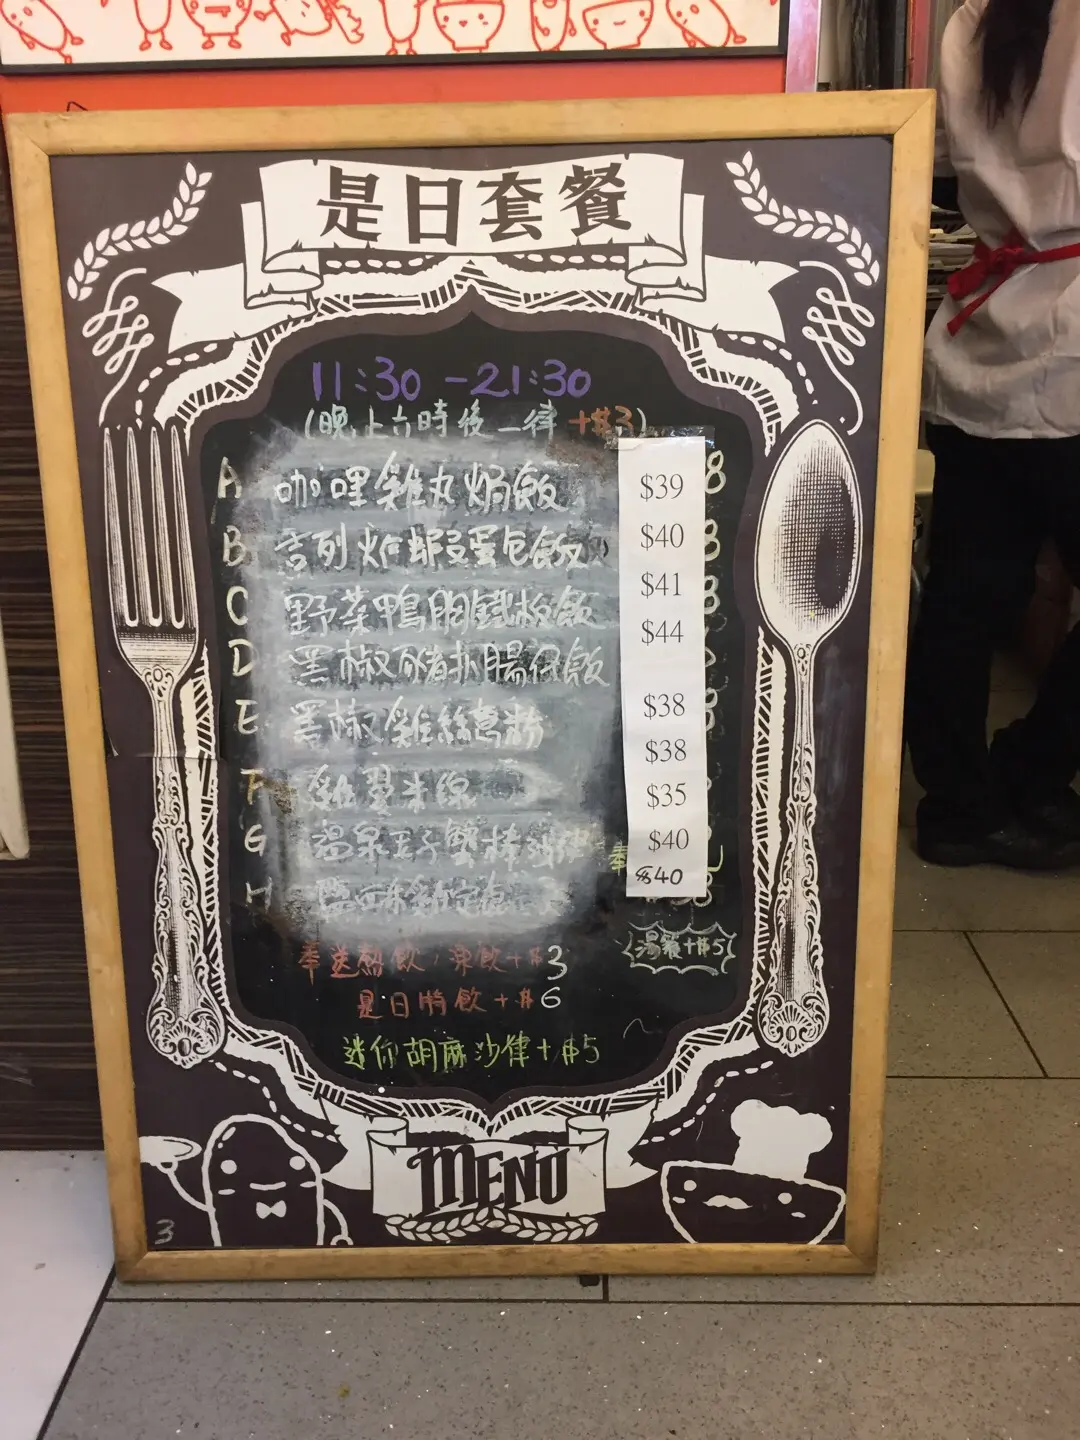 是日套餐
11:30 - 21:30
(晚上六時後一律 +$3)
A 咖哩雞丸焗飯 $39 8
B 吉列炸蝦蛋包飯 $40
C 野菜鴨胸鐵板飯 $41
D 黑椒豬扒腸仔飯 $44
E 黑椒雞絲意粉 $38
F 雞翼米線 $38
G 溫泉玉子蟹棒沙律 $35
$40
H $40
奉送熱飲,凍飲+$3
湯餐+$5
是日特飲+$6
迷你胡麻沙律+$5
MENU
3